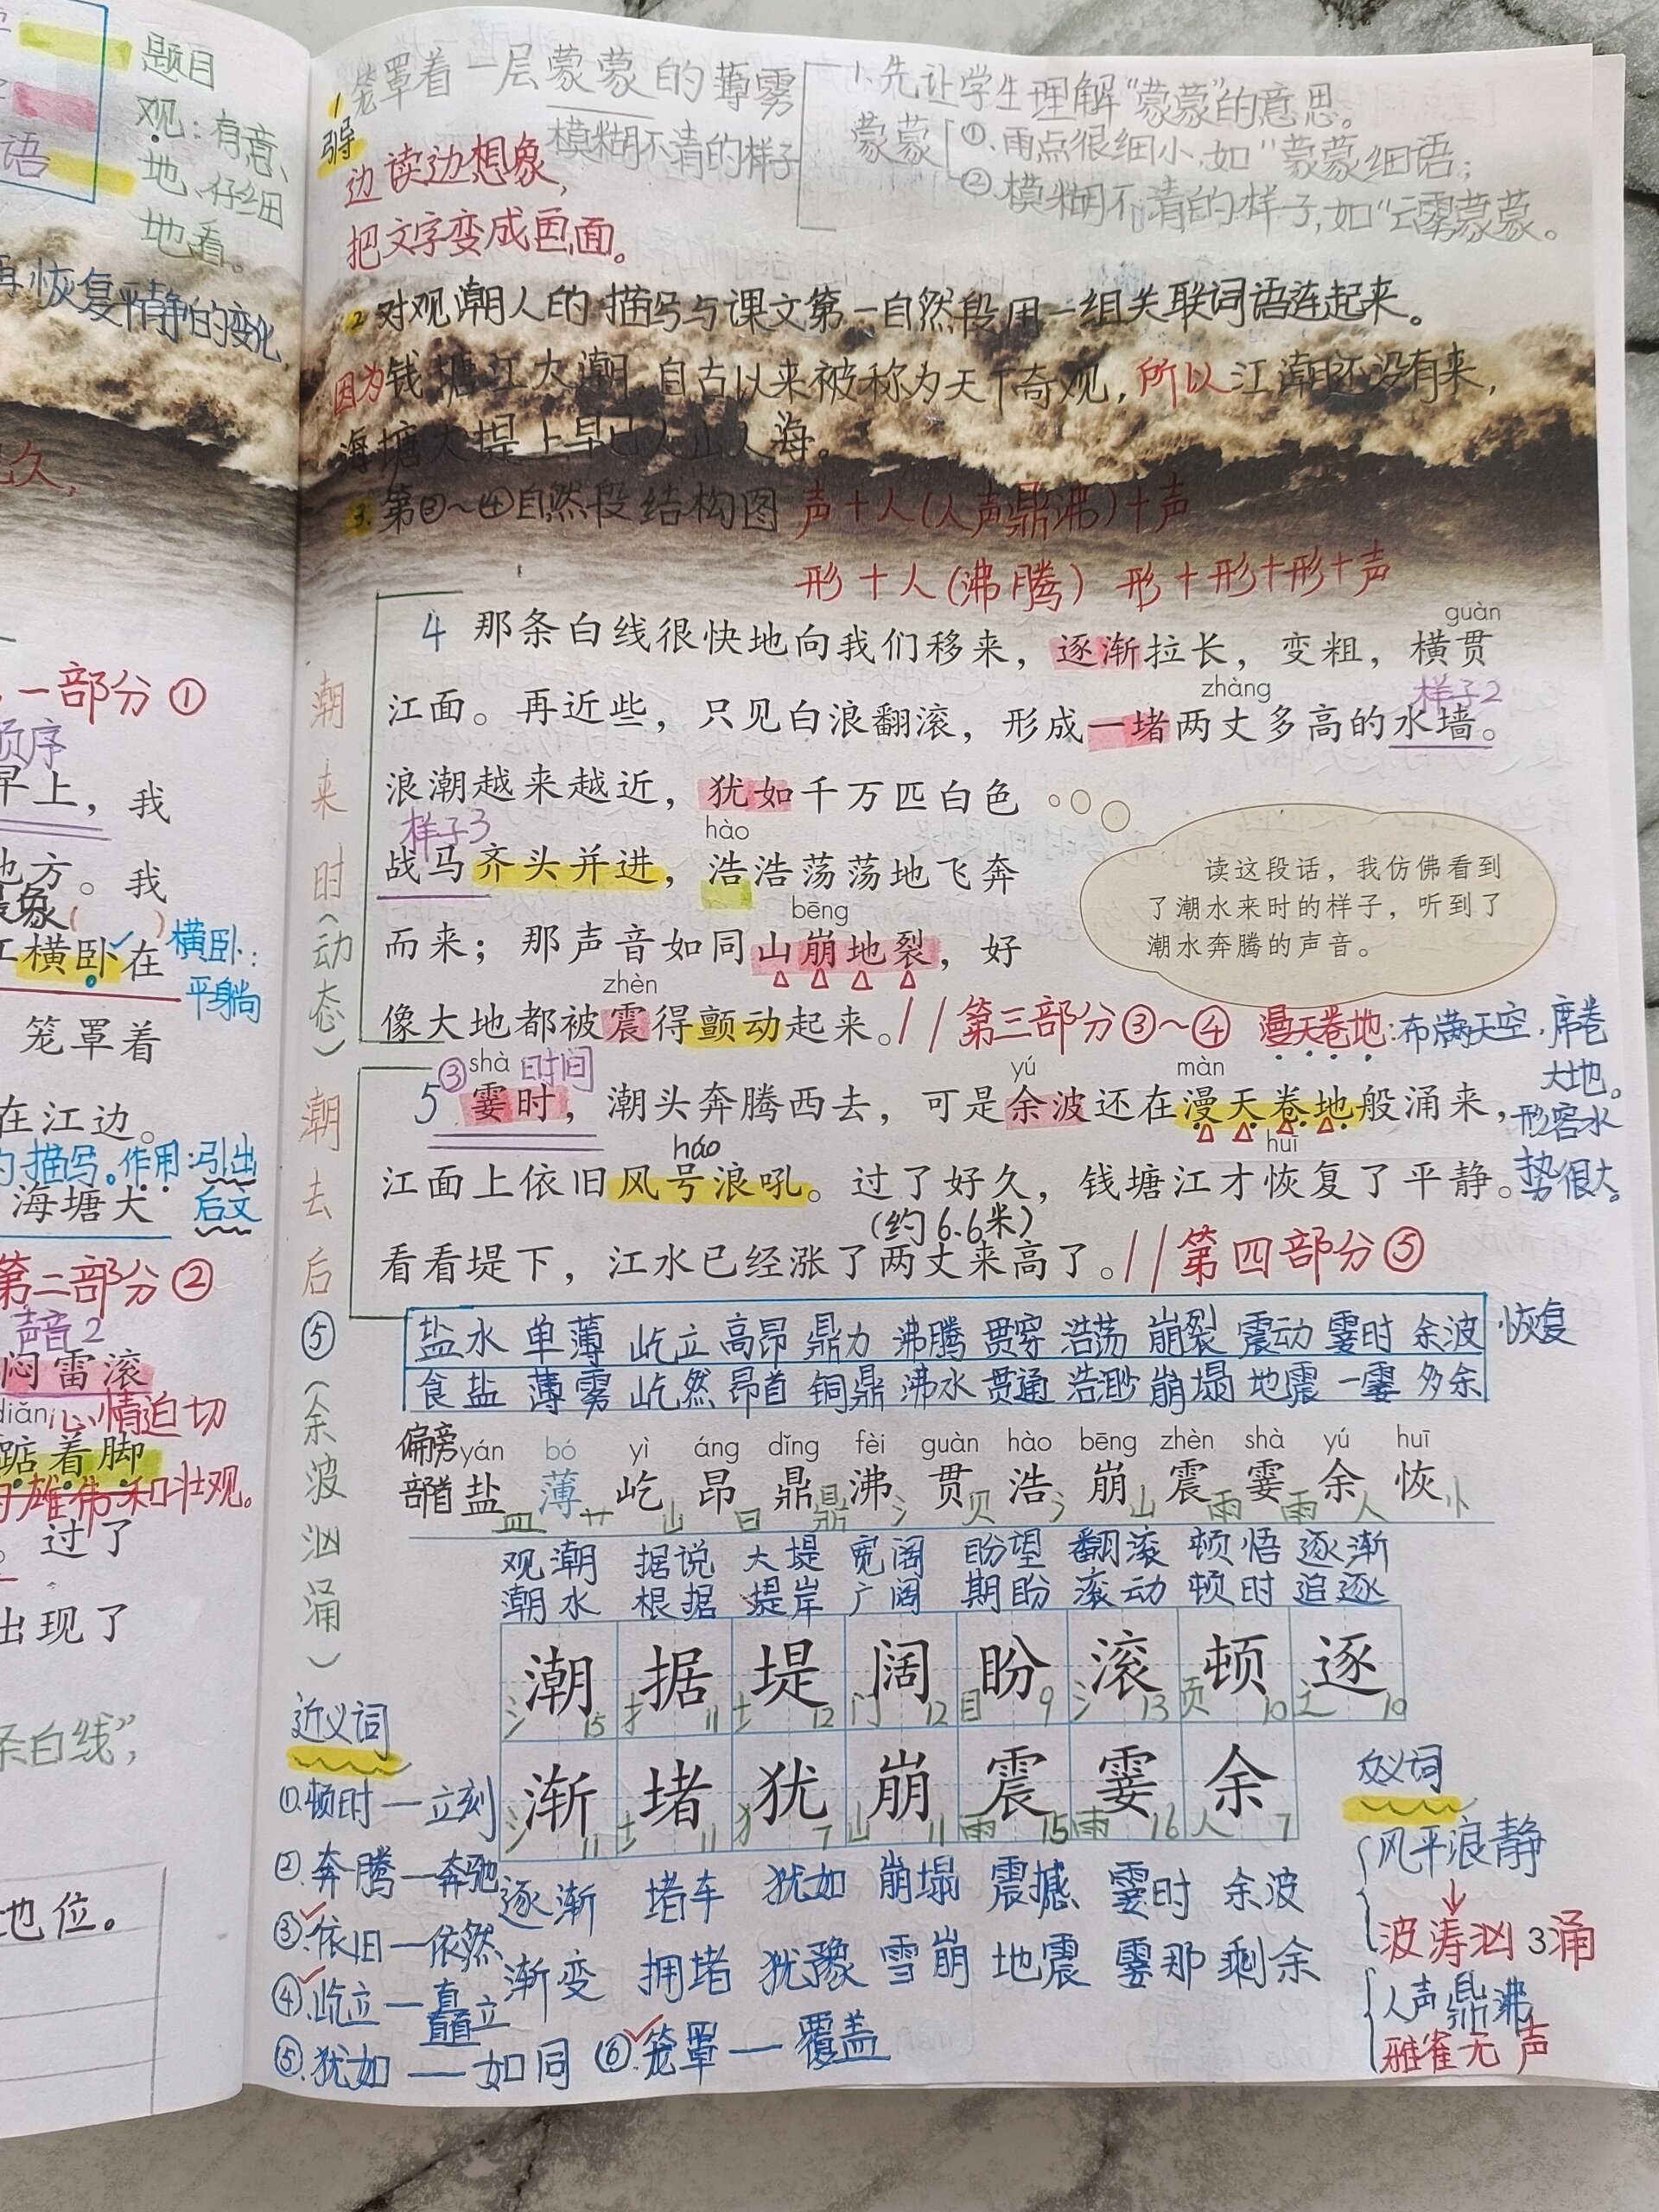 题目
观：有意、
地、仔细
地看。
语
再恢复平静的变化
一部分①
顺序
早上，我
地方。我
横卧在
横卧：
平躺
笼罩着
在江边。
的描写。作用：引出
后文
海塘大
第二部分②
声音2
闷雷滚
心情迫切
踮着脚
雄伟和壮观。
过了
出现了
条白线”，
地位。
1 笼罩着一层蒙蒙的薄雾
引导
模糊不清的样子
边读边想象，
把文字变成画面。
1、先让学生理解“蒙蒙”的意思。
蒙蒙
①、雨点很细小，如“蒙蒙细语；
②、模糊不清的样子，如“云雾蒙蒙。
2 对观潮人的描写与课文第一自然段用一组关联词语连起来。
因为钱塘江大潮自古以来被称为天下奇观，所以江潮还没有来，
海塘大堤上早已人山人海。
3. 第③～④自然段结构图 声+人（人声鼎沸）+声
形+人（沸腾） 形+形+形+声
潮来时（动态）
guàn
4 那条白线很快地向我们移来，逐渐拉长，变粗，横贯
zhàng 样子2
江面。再近些，只见白浪翻滚，形成一堵两丈多高的水墙。
浪潮越来越近，犹如千万匹白色
样子3 hào
战马齐头并进，浩浩荡荡地飞奔
bēng
而来；那声音如同山崩地裂，好
zhèn
像大地都被震得颤动起来。//第三部分③～④
读这段话，我仿佛看到
了潮水来时的样子，听到了
潮水奔腾的声音。
漫天卷地：布满天空，席卷
大地。
形容水
势很大。
潮去后⑤（余波汹涌）
③ shà 时间 yú màn
5 霎时，潮头奔腾西去，可是余波还在漫天卷地般涌来，
háo huī
江面上依旧风号浪吼。过了好久，钱塘江才恢复了平静。
（约6.6米）
看看堤下，江水已经涨了两丈来高了。//第四部分⑤
盐水 单薄 屹立 高昂 鼎力 沸腾 贯穿 浩荡 崩裂 震动 霎时 余波 恢复
食盐 薄雾 屹然 昂首 铜鼎 沸水 贯通 浩渺 崩塌 地震 一霎 多余
偏旁 yán bó yì áng dǐng fèi guàn hào bēng zhèn shà yú huī
部首 盐 薄 屹 昂 鼎 沸 贯 浩 崩 震 霎 余 恢
皿 艹 山 日 鼎 氵 贝 氵 山 雨 雨 人 忄
观潮 据说 大堤 宽阔 盼望 翻滚 顿悟 逐渐
潮水 根据 堤岸 广阔 期盼 滚动 顿时 追逐
潮 据 堤 阔 盼 滚 顿 逐
氵15 扌11 土12 门12 目9 氵13 页10 辶10
渐 堵 犹 崩 震 霎 余
氵11 土11 犭7 山11 雨15 雨16 人7
逐渐 堵车 犹如 崩塌 震撼 霎时 余波
渐变 拥堵 犹豫 雪崩 地震 霎那 剩余
近义词
①顿时—立刻
②奔腾—奔驰
③依旧—依然
④屹立—矗立
⑤犹如—如同
⑥笼罩—覆盖
反义词
风平浪静
波涛汹3涌
人声鼎沸
雅雀无声